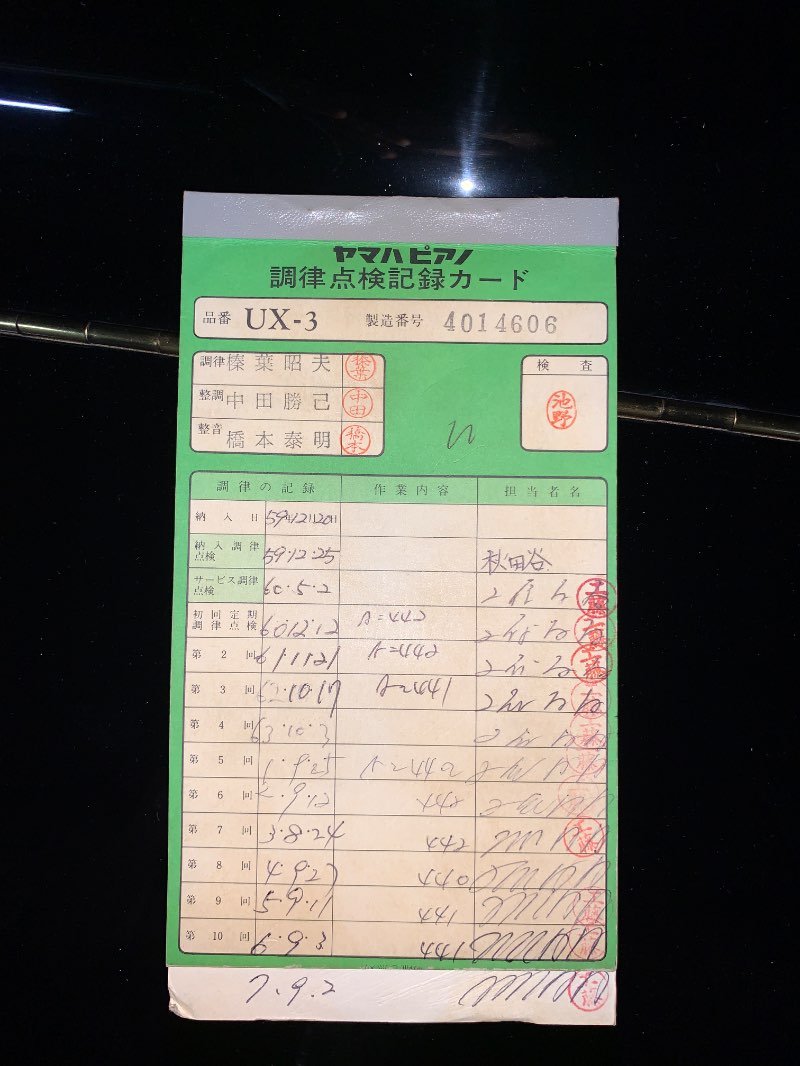 ヤマハピアノ
調律点検記録カード
品番 UX-3 製造番号 4014606
調律 榛葉昭夫 榛葉 検査
整調 中田勝己 中田 池野
整音 橋本泰明 橋本
調律の記録 作業内容 担当者名
納入日 59年12月20日
納入調律点検 59.12.25 秋田谷
サービス調律点検 60.5.2
初回定期調律点検 60.12.12 A=442
第2回 61.11.21 A=442
第3回 62.10.17 A=441
第4回 63.10.3
第5回 1.9.25 A=442
第6回 2.9.12 442
第7回 3.8.24 442
第8回 4.9.27 440
第9回 5.9.11 441
第10回 6.9.3 441
7.9.2